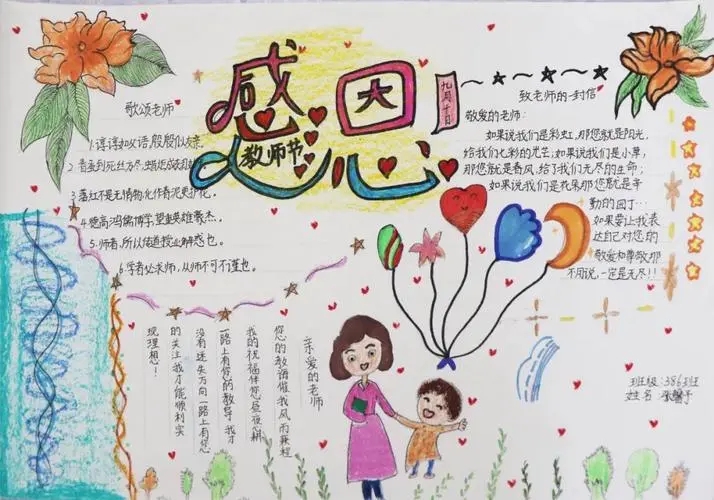 感恩
教师节
九月十日
歌颂老师
1.谆谆如父语,殷殷似友亲。
2.春蚕到死丝方尽,蜡炬成灰泪始干
3.落红不是无情物,化作春泥更护花。
4.晚高鸿儒博学,望重英雄豪杰。
5.师者,所以传道授业解惑也。
6.学者必求师,从师不可不谨也。
致老师的一封信
敬爱的老师:
如果说我们是彩虹,那您就是阳光,
给我们七彩的光芒;如果说我们是小草,
那您就是春风,给了我们无尽的生命;
如果说我们是花朵那您就是辛
勤的园丁…
如果要让我表
达自己对您的
敬爱和尊敬那
不用说,一定是无尽!!
亲爱的老师
您的教诲催我风雨兼程
我的祝福伴您昼夜耕
一路上有你的教导我才
没有迷失方向一路上有您
的关注我才能顺利实
现理想!
班级:386班
姓名:张馨予